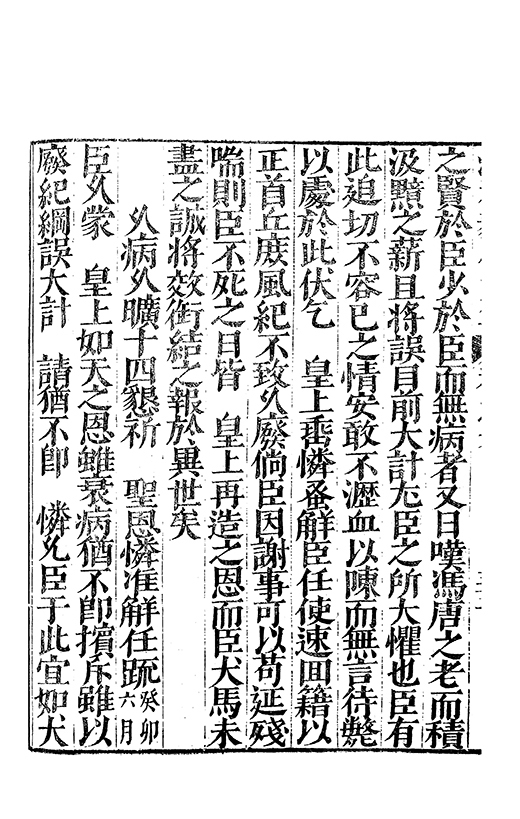 之賢於臣少於臣而無病者又日嘆馮唐之老而積
汲黯之薪且將誤目前大計尢臣之所大懼也臣有
此追切不容已之情安敢不瀝血以陳而無言待斃
以處於此伏乞　皇上垂憐蚤解臣任使速回籍以
正首丘庻風紀不致久廢倘臣因謝事可以苟延殘
喘則臣不死之日皆　皇上再造之恩而臣犬馬未
盡之誠將效銜結之報於異世矣
久病久曠十四懇祈　聖恩憐准解任疏癸卯六月
臣久蒙　皇上如天之恩雖衰病猶不即擯斥雖以
廢紀綱誤大計　請猶不即　憐允臣于此宜如犬